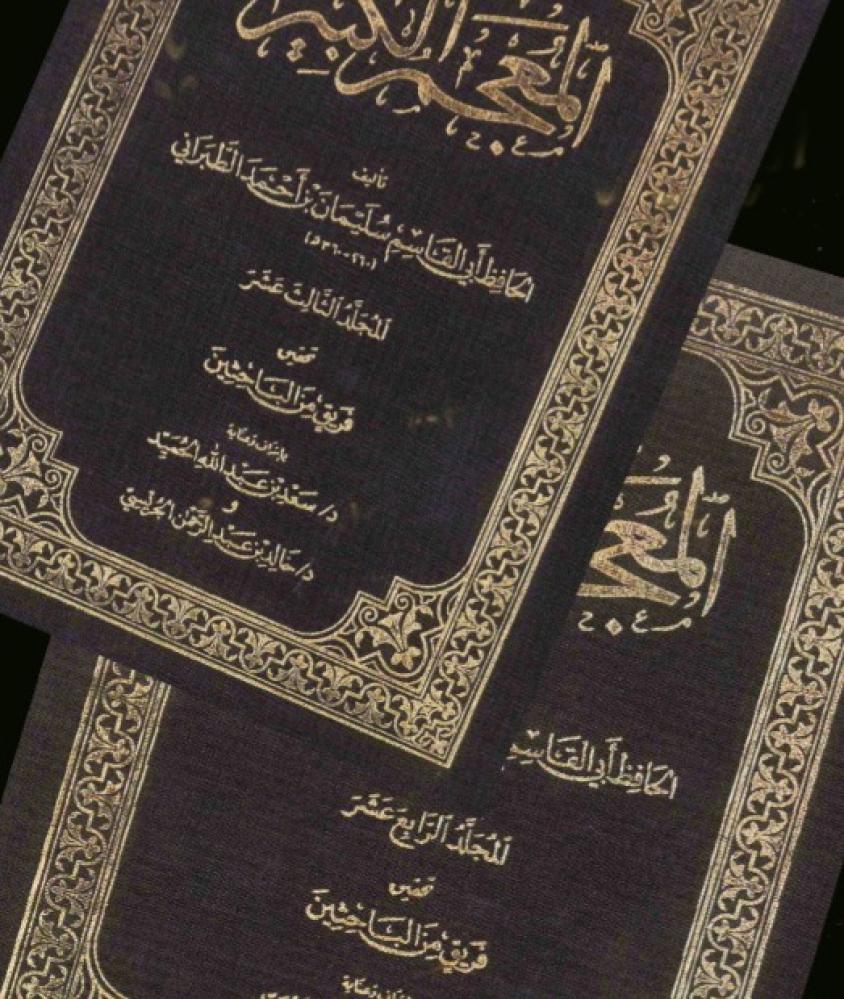 المعجم الكبير
تأليف
الحافظ أبي القاسم سُليمَان بن أحمَد الطبراني
(٢٦٠-٣٦٠هـ)
المُجلَّدُ الثَّالث عَشَرَ
تحقيق
فَريق مِنَ البَاحِثِينَ
بإشراف وعناية
د/ سَعد بن عَبد الله الحميّد
و
د/ خالد بن عَبد الرحمن الجريسي
المعجم
الحافظ أبي القاسم
المُجلَّدُ الرَّابعَ عَشَرَ
تحقيق
فَريق مِنَ البَاحِثِينَ
بإشراف وعناية